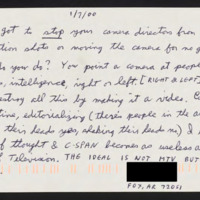 1/7/00
got to stop your camera directors from
tion shots or moving the camera for no
do you do? You point a camera at people
, intelligence, right or left. [RIGHT & LEFT]
troy all this by making it a video. C
time, editorializing (there's people in the a
this heads yea, shaking this heads no) I
of thought & C-SPAN becomes as useless a
of Television. THE IDEAL IS NOT MTV BUT
FOY, AR 72061